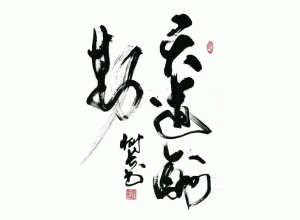 天道酬
勤